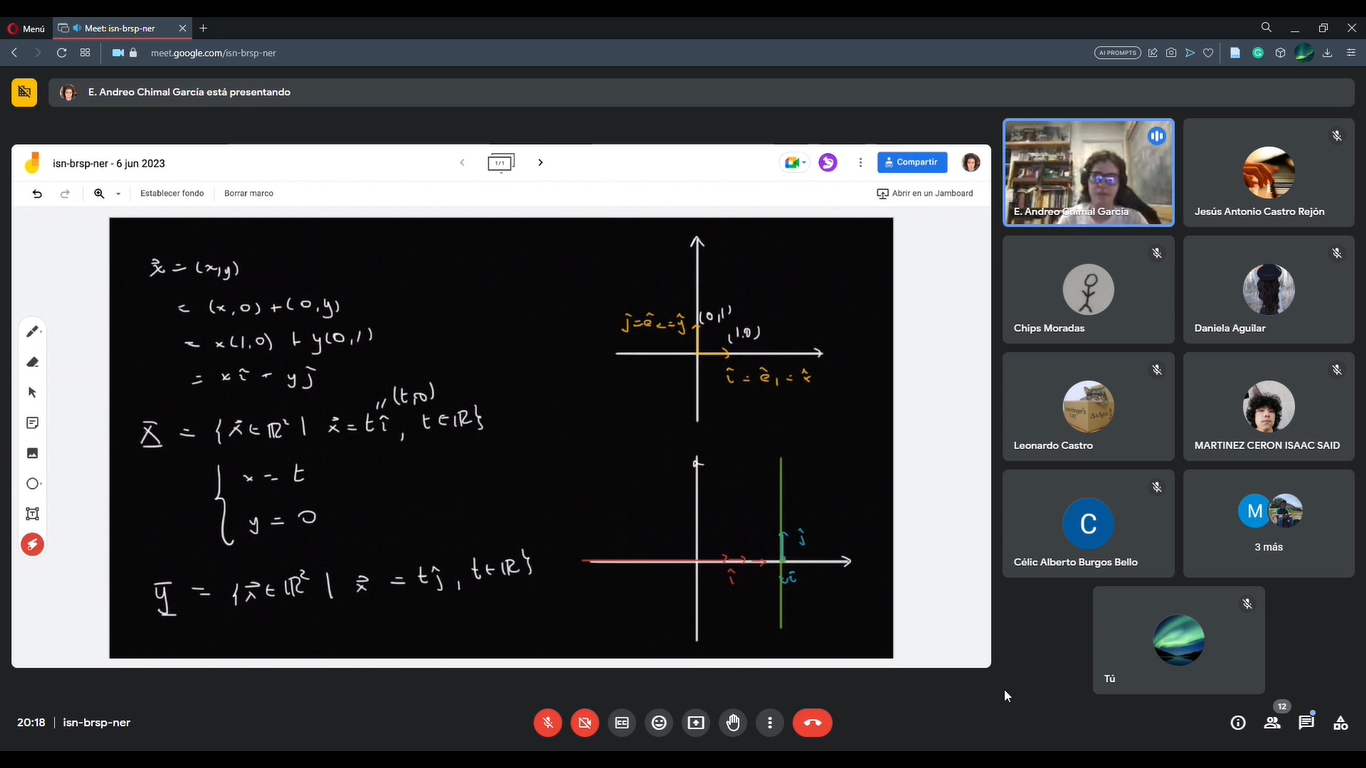 Menú
Meet: isn-brsp-ner
meet.google.com/isn-brsp-ner
AI PROMPTS
E. Andreo Chimal García está presentando
isn-brsp-ner - 6 jun 2023
1/1
Compartir
Establecer fondo
Borrar marco
Abrir en un Jamboard
x⃗ = (x,y)
= (x,0) + (0,y)
= x(1,0) + y(0,1)
= x î + y ĵ
" (t,0)
X = {x⃗ ∈ ℝ² | x⃗ = t î, t ∈ ℝ}
x = t
y = 0
Y = {x⃗ ∈ ℝ² | x⃗ = t ĵ, t ∈ ℝ}
ĵ = ê₂ = ŷ
(0,1)
(1,0)
î = ê₁ = x̂
ĵ
î
E. Andreo Chimal García
Jesús Antonio Castro Rejón
Chips Moradas
Daniela Aguilar
Leonardo Castro
MARTINEZ CERON ISAAC SAID
C
Célic Alberto Burgos Bello
M
3 más
Tú
20:18 | isn-brsp-ner
12